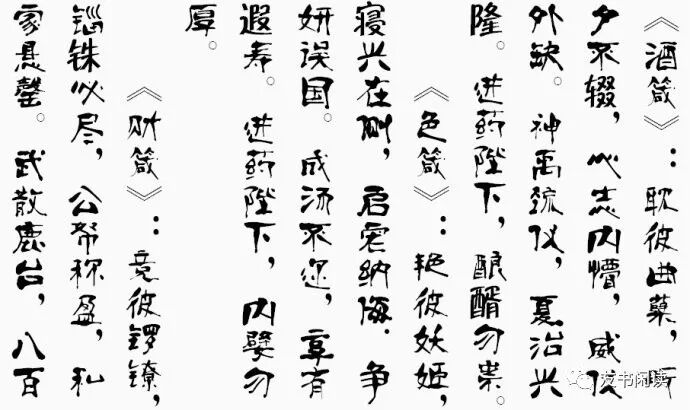 《酒箴》：耽彼曲蘖，昕
夕不辍，心志内懵，威仪
外缺。神禹疏仪，夏治兴
隆。进药陛下，醑勿崇。
《色箴》：艳彼妖姬，
寝兴在侧，启宠纳侮，争
妍误国。成汤不迩，享有
遐寿。进药陛下，内嬖勿
厚。
《财箴》：竞彼镠镣，
锱铢必尽，公帑称盈，私
家悬罄。武散鹿台，八百
书阅读